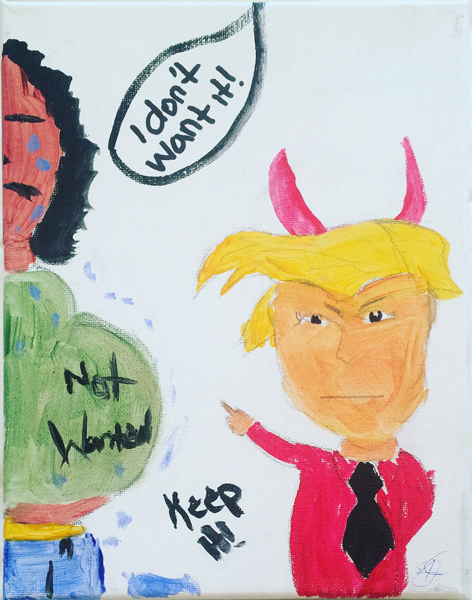 I don't
want it!
Not
Wanted
Keep
It!